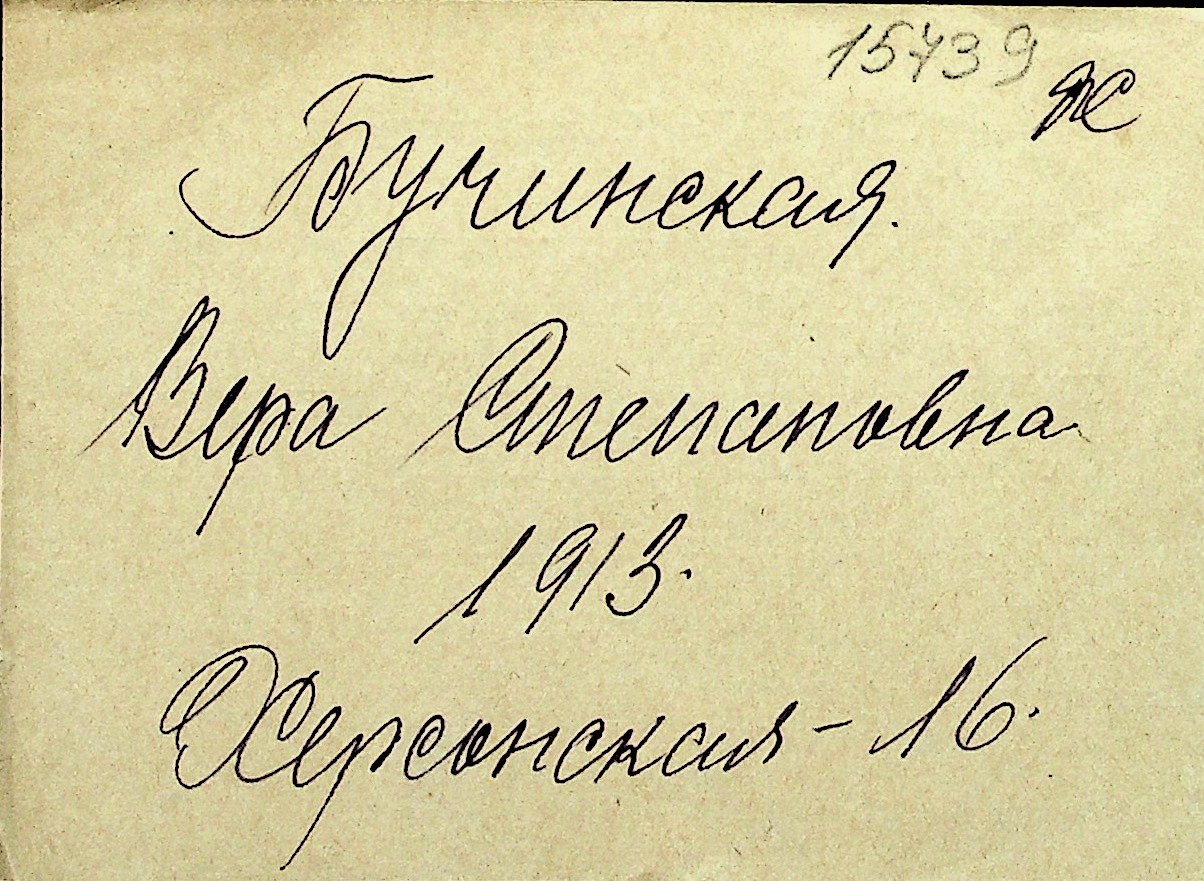 15739 ж
Бучинская.
Вера Степановна
1913.
Херсонская - 16.